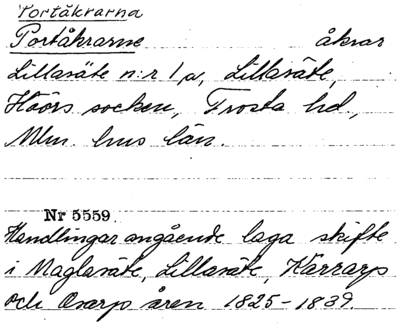 Portåkrarna
Portåkrarne åkrar
Lillasäte n:r 1,a, Lillasäte,
Höörs socken, Frosta hd,
Mlm. hus län.
Nr 5559.
Handlingar angående laga skifte
i Maglasäte, Lillasäte, Kärrarp
och Oxarp åren 1825-1839.